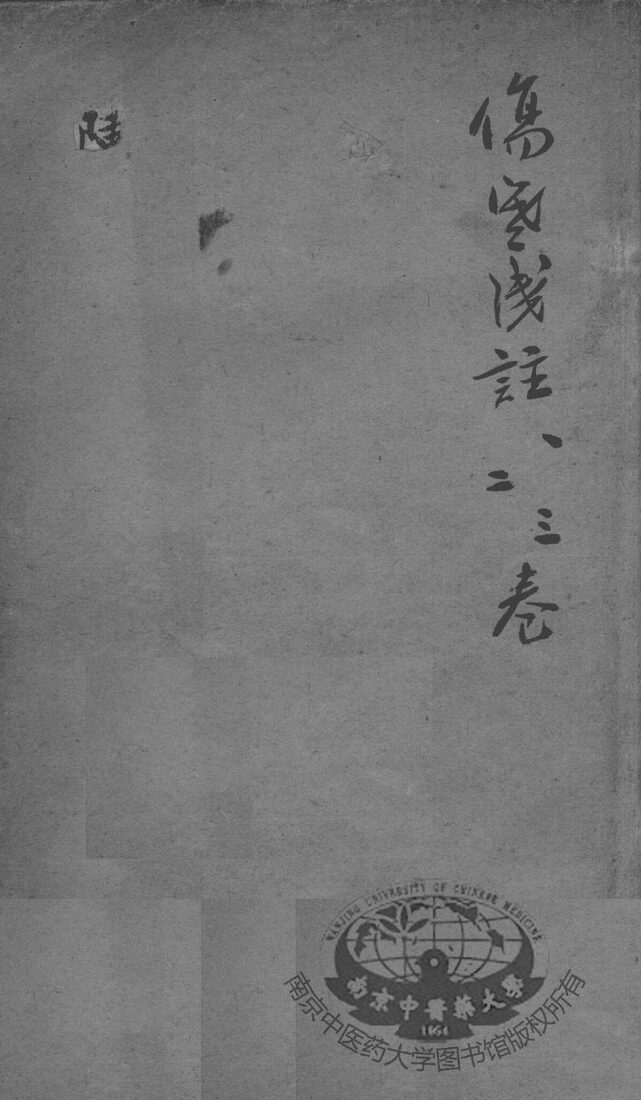 傷寒淺註一二三卷
陸
NANJING UNIVERSITY OF CHINESE MEDICINE
南京中醫藥大學
1954
南京中医药大学图书馆版权所有